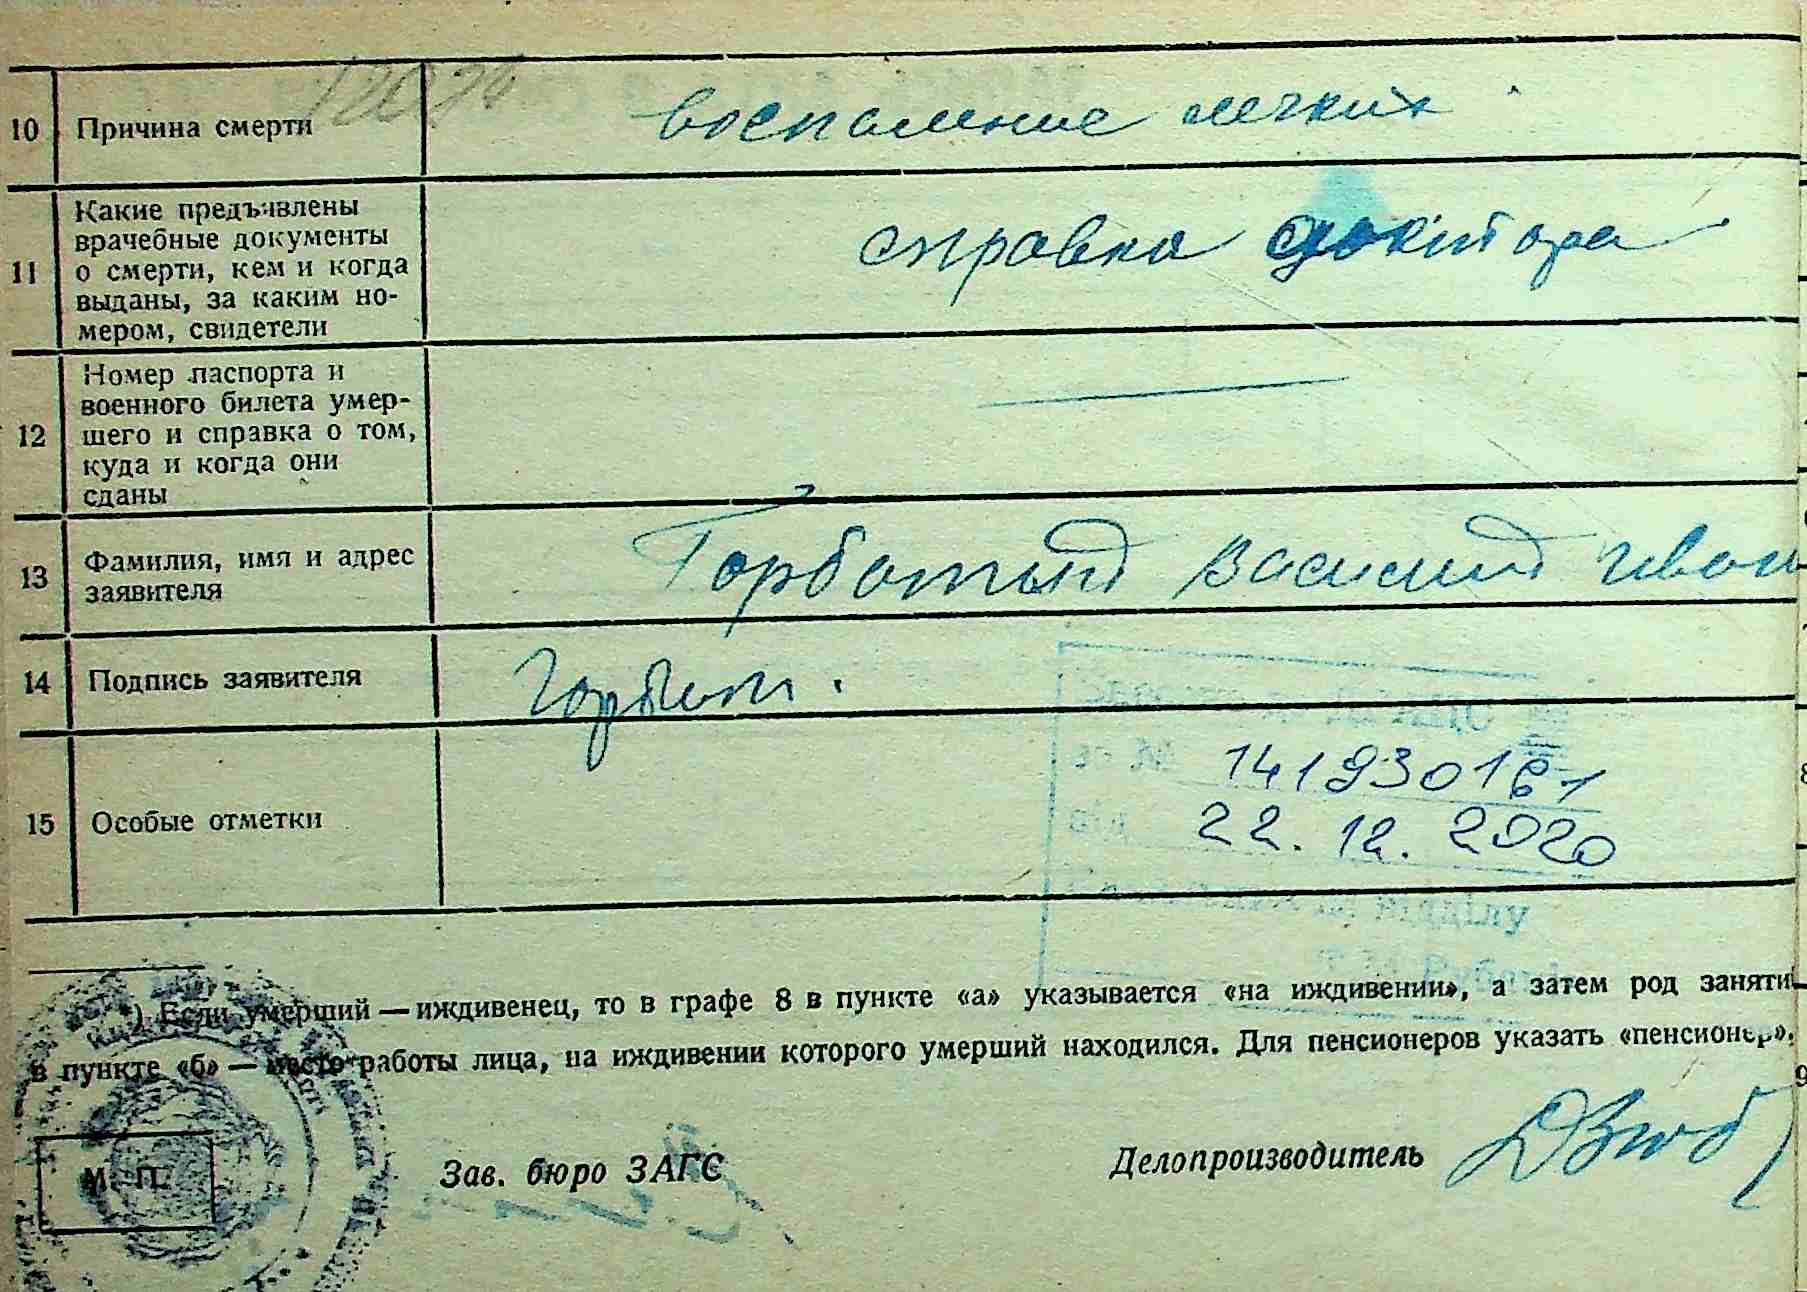 10 Причина смерти воспаление легких
11 Какие предъявлены
врачебные документы
о смерти, кем и когда
выданы, за каким но-
мером, свидетели
справка доктора
12 Номер паспорта и
военного билета умер-
шего и справка о том,
куда и когда они
сданы
13 Фамилия, имя и адрес
заявителя
Горбатый Василий Иван
14 Подпись заявителя
15 Особые отметки
22.12.2020
відділу
) Если умерший — иждивенец, то в графе 8 в пункте «а» указывается «на иждивении», а затем род заняти
в пункте «б» — место работы лица, на иждивении которого умерший находился. Для пенсионеров указать «пенсионер».
М. П. Зав. бюро ЗАГС Делопроизводитель